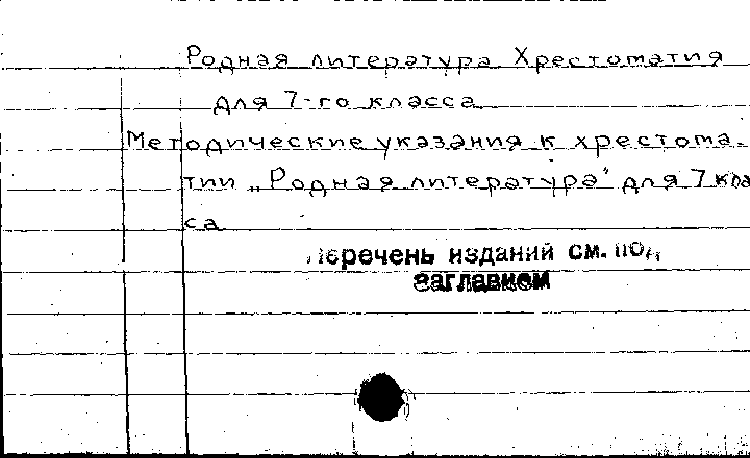 Родная литература Хрестоматия
для 7-го класса
Методические указания к хрестома-
тии „Родная литература" для 7 клас
са
Перечень изданий см. под
заглавием